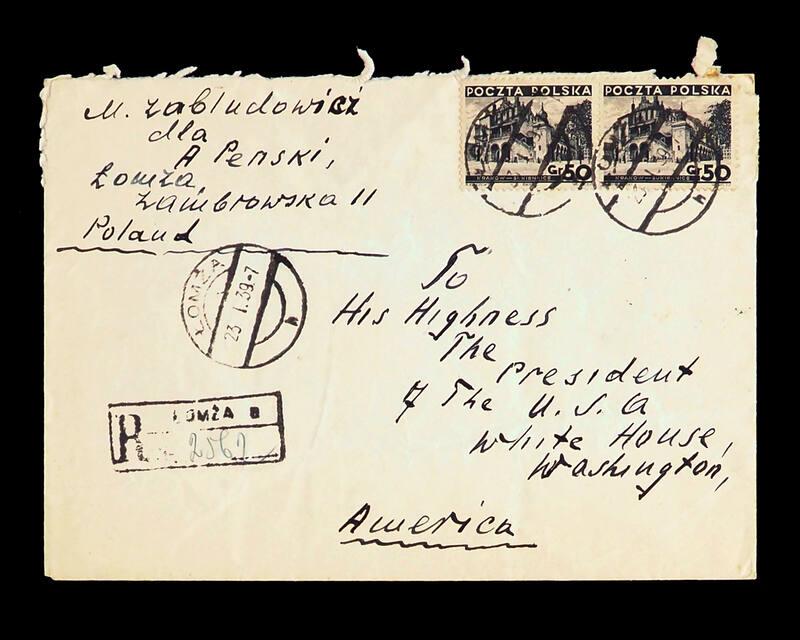 M. Zabludowicz
dla
A Penski,
Łomża
Zambrowska 11
Poland
POCZTA POLSKA
KRAKÓW—SUKIENNICE
Gr50
POCZTA POLSKA
KRAKÓW—SUKIENNICE
Gr50
ŁOMŻA
23 I.39-7
To
His Highness
The
President
of The U.S.A
White House,
Washington,
America
R
ŁOMŻA